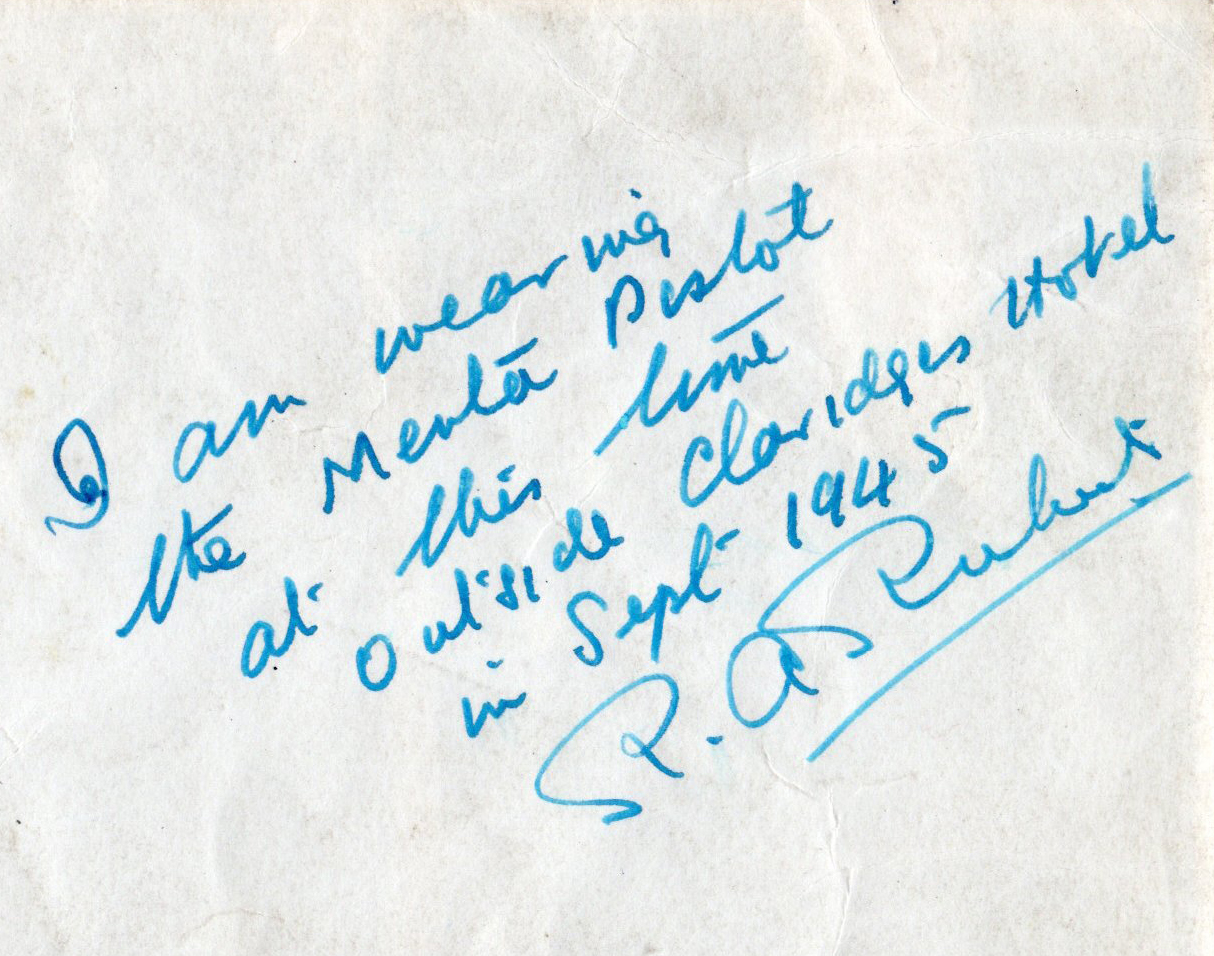 I am wearing
the Menta Pistol
at this time
outside Claridges Hotel
in Sept 1945
R. A Rubent